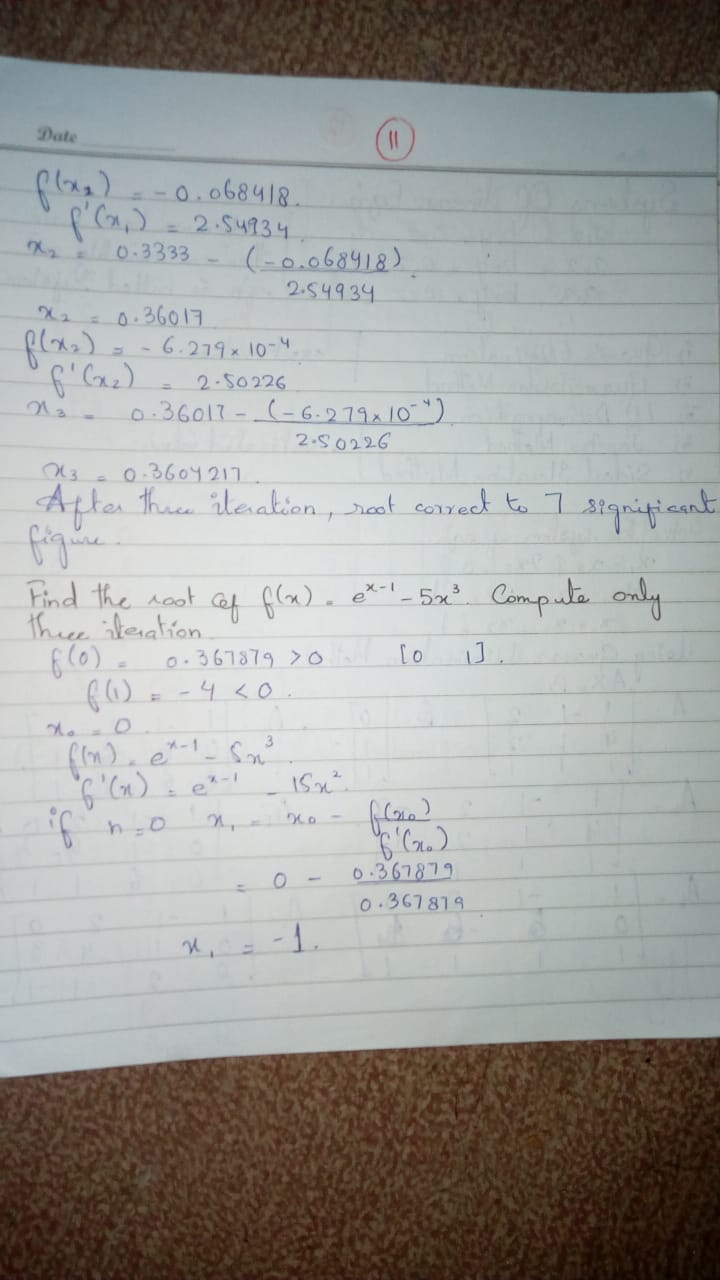 Date
11
f(x₁) = -0.068418.
f'(x₁) = 2.54934
x₂ = 0.3333 - (-0.068418)
2.54934
x₂ = 0.36017
f(x₂) = -6.279x10⁻⁴
f'(x₂) = 2.50226
x₃ = 0.36017 - (-6.279x10⁻⁴)
2.50226
x₃ = 0.3604217.
After three iteration, root correct to 7 significant
figure.
Find the root of f(x) = eˣ⁻¹ - 5x³. Compute only
three iteration
f(0) = 0.367879 >0 [0 1].
f(1) = -4 <0.
x₀ = 0
f(x) = eˣ⁻¹ - 5x³
f'(x) = eˣ⁻¹ - 15x².
if n=0 x₁ = x₀ - f(x₀)
f'(x₀)
= 0 - 0.367879
0.367879
x₁ = -1.